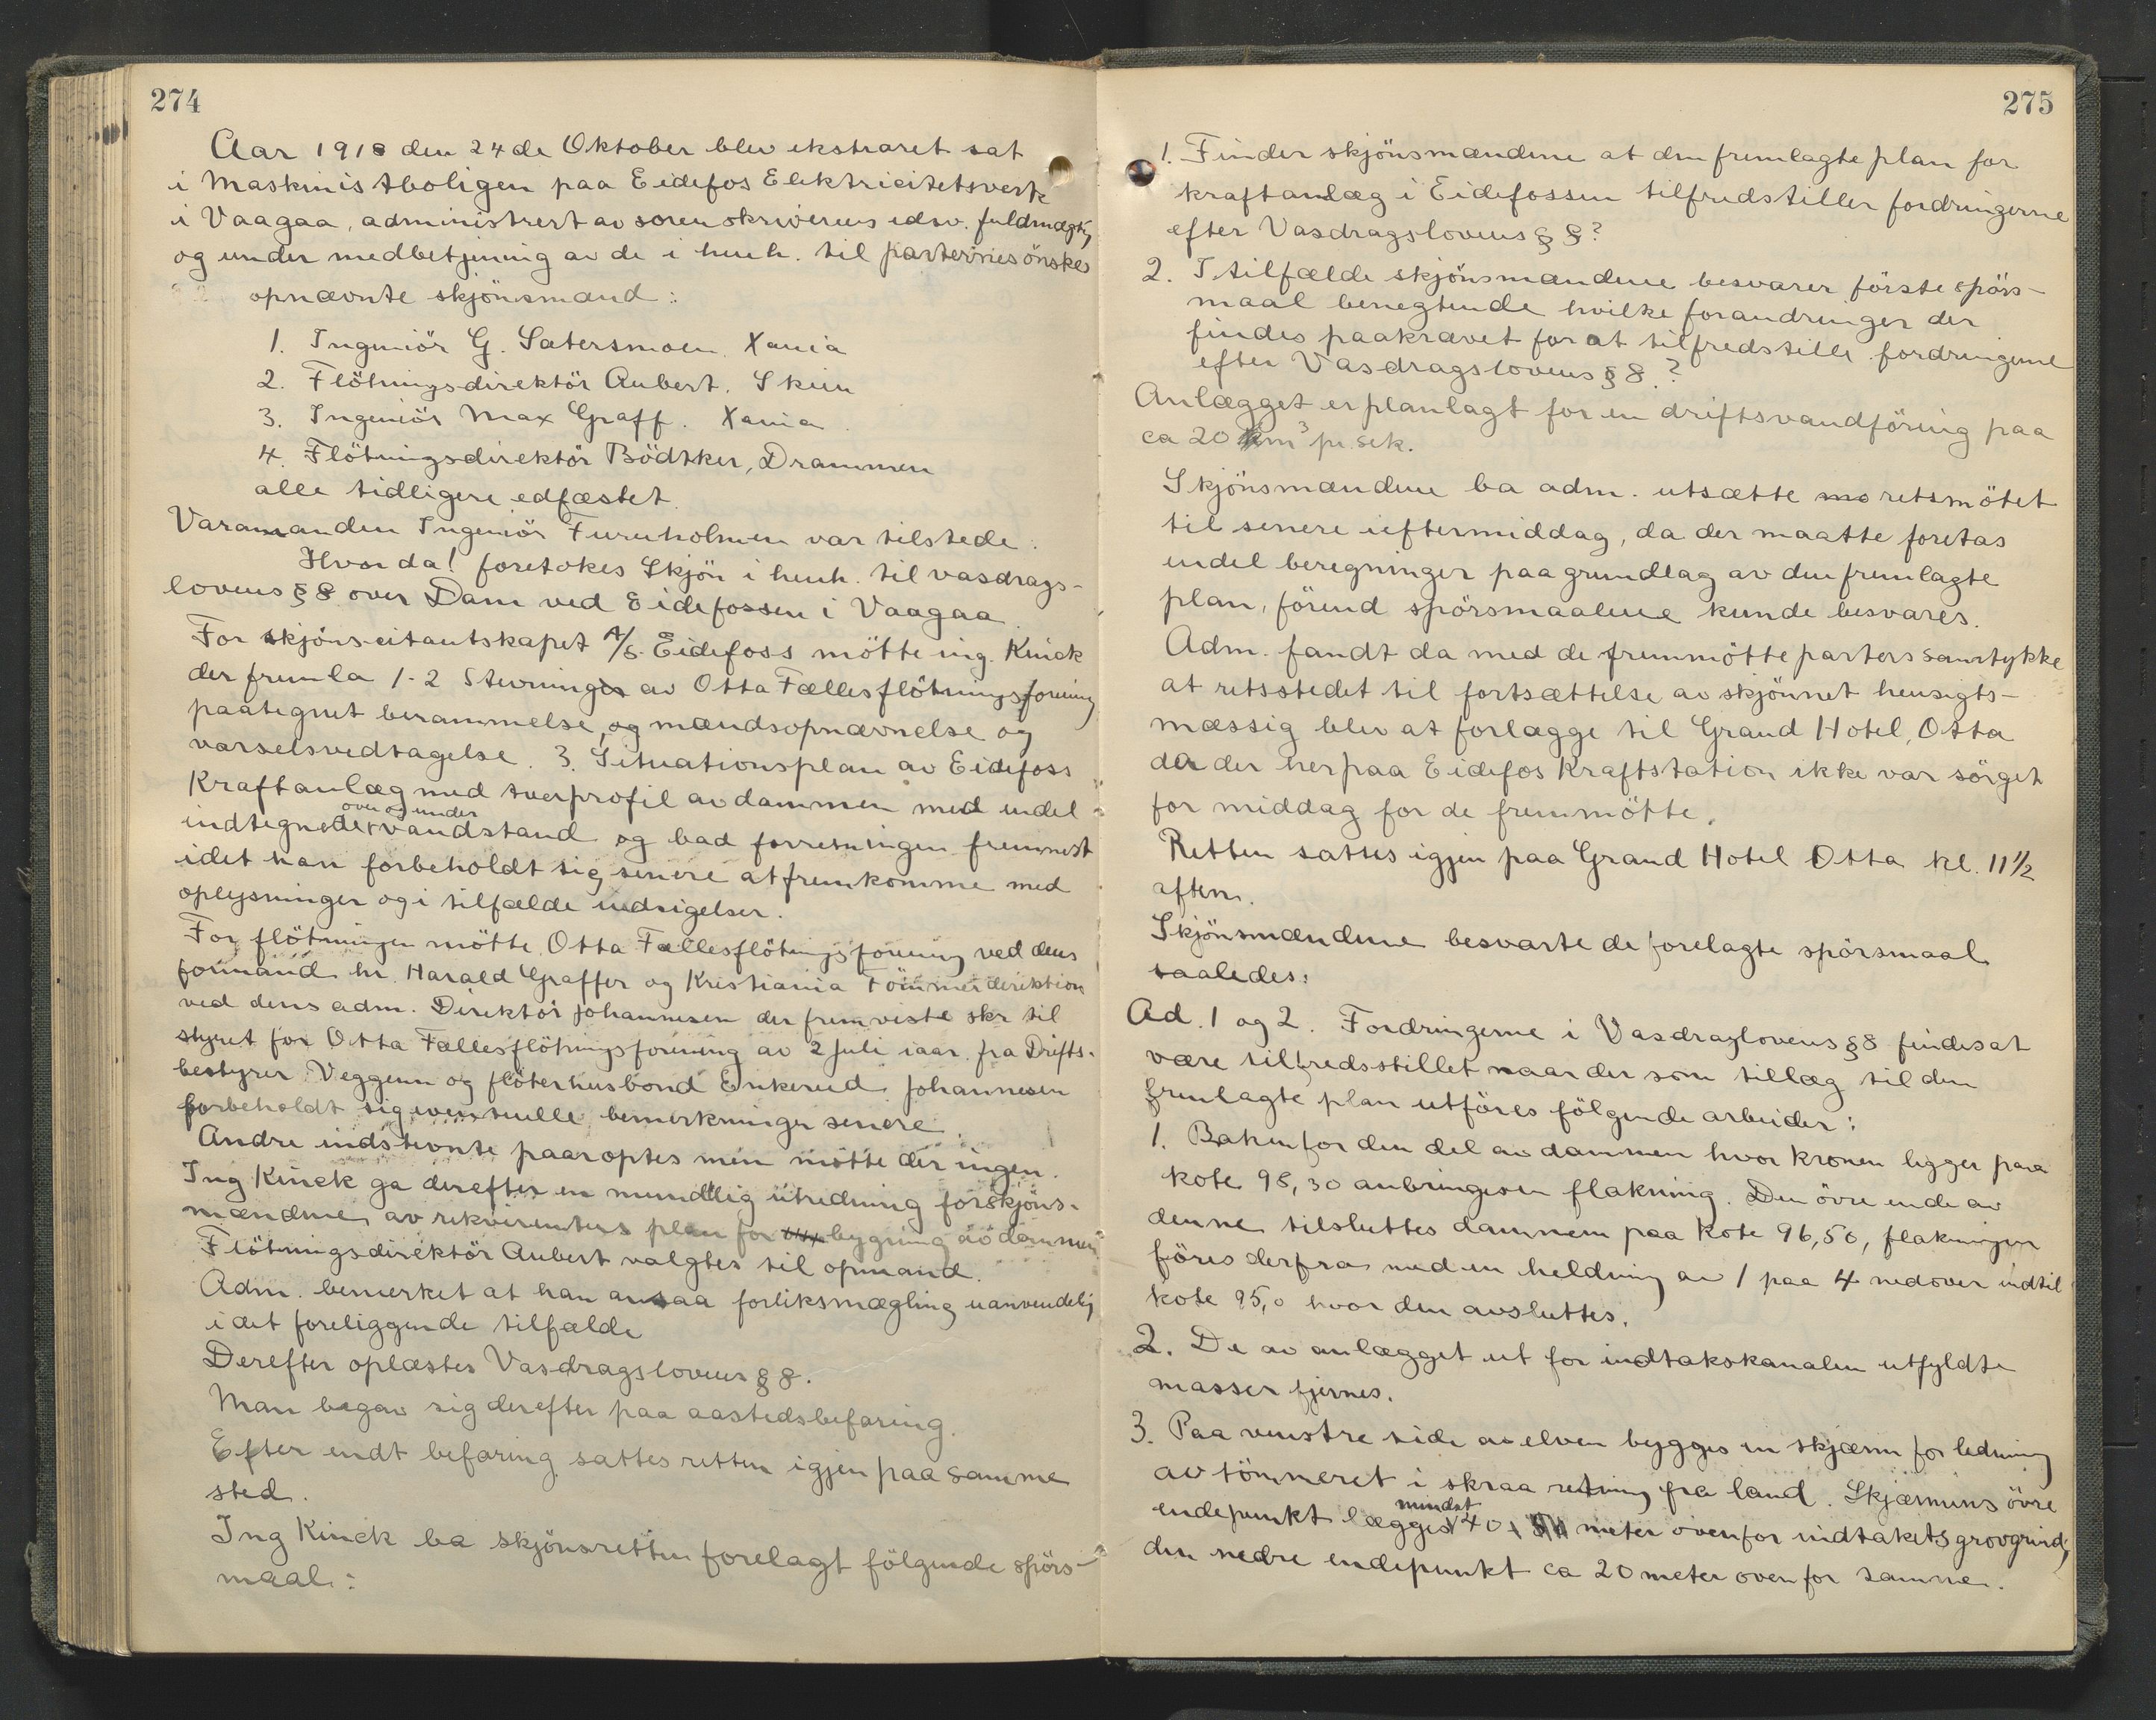 274
Aar 1918 den 24de Oktober blev ekstraret sat
i Maskinistboligen paa Eidefos Elektricitetsverk
i Vaagaa, administrert av sorenskriverens edsv. fuldmægtig
og under medbetjening av de i henh. til parternes önske
opnævnte skjönsmænd:
1. Ingeniör G. Sætersmoen Xania
2. Flötningsdirektör Aubert. Skien
3. Ingeniör Max Graff. Xania.
4. Flötningsdirektör Bödtker, Drammen
alle tidligere edfæstet.
Varamanden Ingeniör Furuholmen var tilstede.
Hvorda! foretokes Skjön i henh. til vasdrags-
lovens § 8 over Dam ved Eidefossen i Vaagaa.
For skjönscitantskapet A/S Eidefoss mötte ing. Kinck
der fremla 1-2 Stevninger av Otta Fællesflötningsforening
paategnet berammelse, og mændsopnævnelse og
varselsvedtagelse. 3. Situationsplan av Eidefoss
Kraftanlæg med tverprofil av dammen med endel
over og under
indtegnede vandstand og bad forretningen fremmet
idet han forbeholdt sig senere at fremkomme med
oplysninger og i tilfælde indsigelser.
For flötningen mötte Otta Fællesflötningsforening ved dens
formand hr. Harald Graffer og Kristiania Tömmerdirektion
ved dens adm. Direktör Johannesen der fremviste skr til
styret for Otta Fællesflötningsforening av 2 Juli iaar fra Drifts-
bestyrer Veggenn og flöterhusbond Enkerud. Johannesen
forbeholdt sig eventuelle bemerkninger senere.
Andre indstevnte paaroptes men mötte der ingen.
Ing Kinck ga derefter en mundtlig utredning for skjöns-
mændene av rekvirentens plan for bygning av dammen
Flötningsdirektör Aubert valgtes til opmand.
Adm. bemerket at han ansaa forliksmægling uanvendelig
i det foreliggende tilfælde
Derefter oplæstes Vasdragslovens § 8.
Man begav sig derefter paa aastedsbefaring.
Efter endt befaring sattes retten igjen paa samme
sted.
Ing Kinck ba skjönsretten forelagt fölgende spörs-
maal:
275
1. Finder skjönsmændene at den fremlagte plan for
kraftanlæg i Eidefossen tilfredstiller fordringerne
efter Vasdragslovens § 8?
2. I tilfælde skjönsmændene besvarer förste spörs-
maal benegtende hvilke forandringer der
findes paakrævet for at tilfredstille fordringerne
efter Vasdragslovens § 8?
Anlægget er planlagt for en driftsvandföring paa
ca 20 m³ pr. sek.
Skjönsmændene ba adm. utsætte retsmötet
til senere ieftermiddag, da der maatte foretas
endel beregninger paa grundlag av den fremlagte
plan, förend spörsmaalene kunde besvares.
Adm. fandt da med de fremmötte parters samtykke
at retsstedet til fortsættelse av skjönnet hensigts-
mæssig blev at forlægge til Grand Hotel, Otta
da der her paa Eidefos Kraftstation ikke var sörget
for middag for de fremmötte.
Retten sattes igjen paa Grand Hotel Otta kl. 11½
aften.
Skjönsmændene besvarte de forelagte spörsmaal
saaledes:
Ad. 1 og 2. Fordringerne i Vasdraglovens § 8 findes at
være tilfredsstillet naar der som tillæg til den
fremlagte plan utföres fölgende arbeider:
1. Bakenfor den del av dammen hvor kronen ligger paa
kote 98,30 anbringes en flakning. Den övre ende av
denne tilsluttes dammen paa kote 96,50, flakningen
föres derfra med en heldning av 1 paa 4 nedover indtil
kote 95,0 hvor den avsluttes.
2. De av anlægget ut for indtakskanalen utfyldte
masser fjernes.
3. Paa venstre side av elven bygges en skjærm for ledning
av tömmeret i skraa retning fra land. Skjærmens övre
mindst
endepunkt lægges 40 meter ovenfor indtakets grovgrind,
den nedre endepunkt ca 20 meter ovenfor samme.